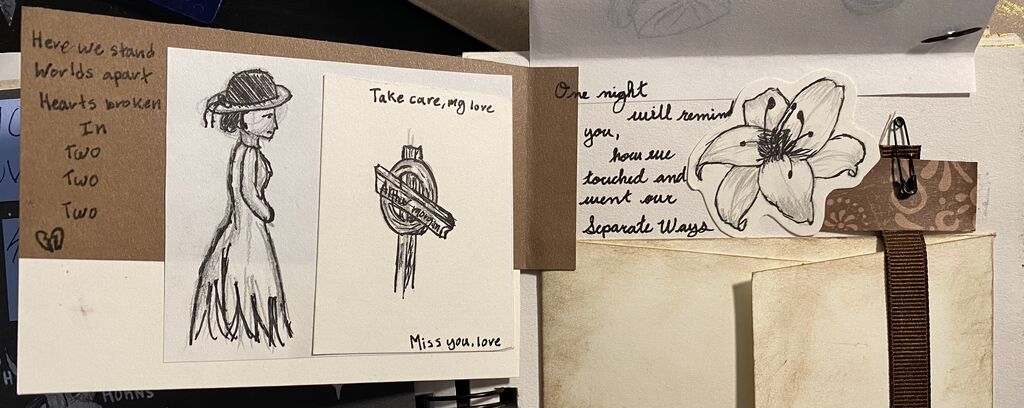 Here we stand
Worlds apart
Hearts broken
In
Two
Two
Two
Take care, my love
Arthur Morgan
Miss you, love
One night
will remind
you,
how we
touched and
went our
Separate Ways
HORNS